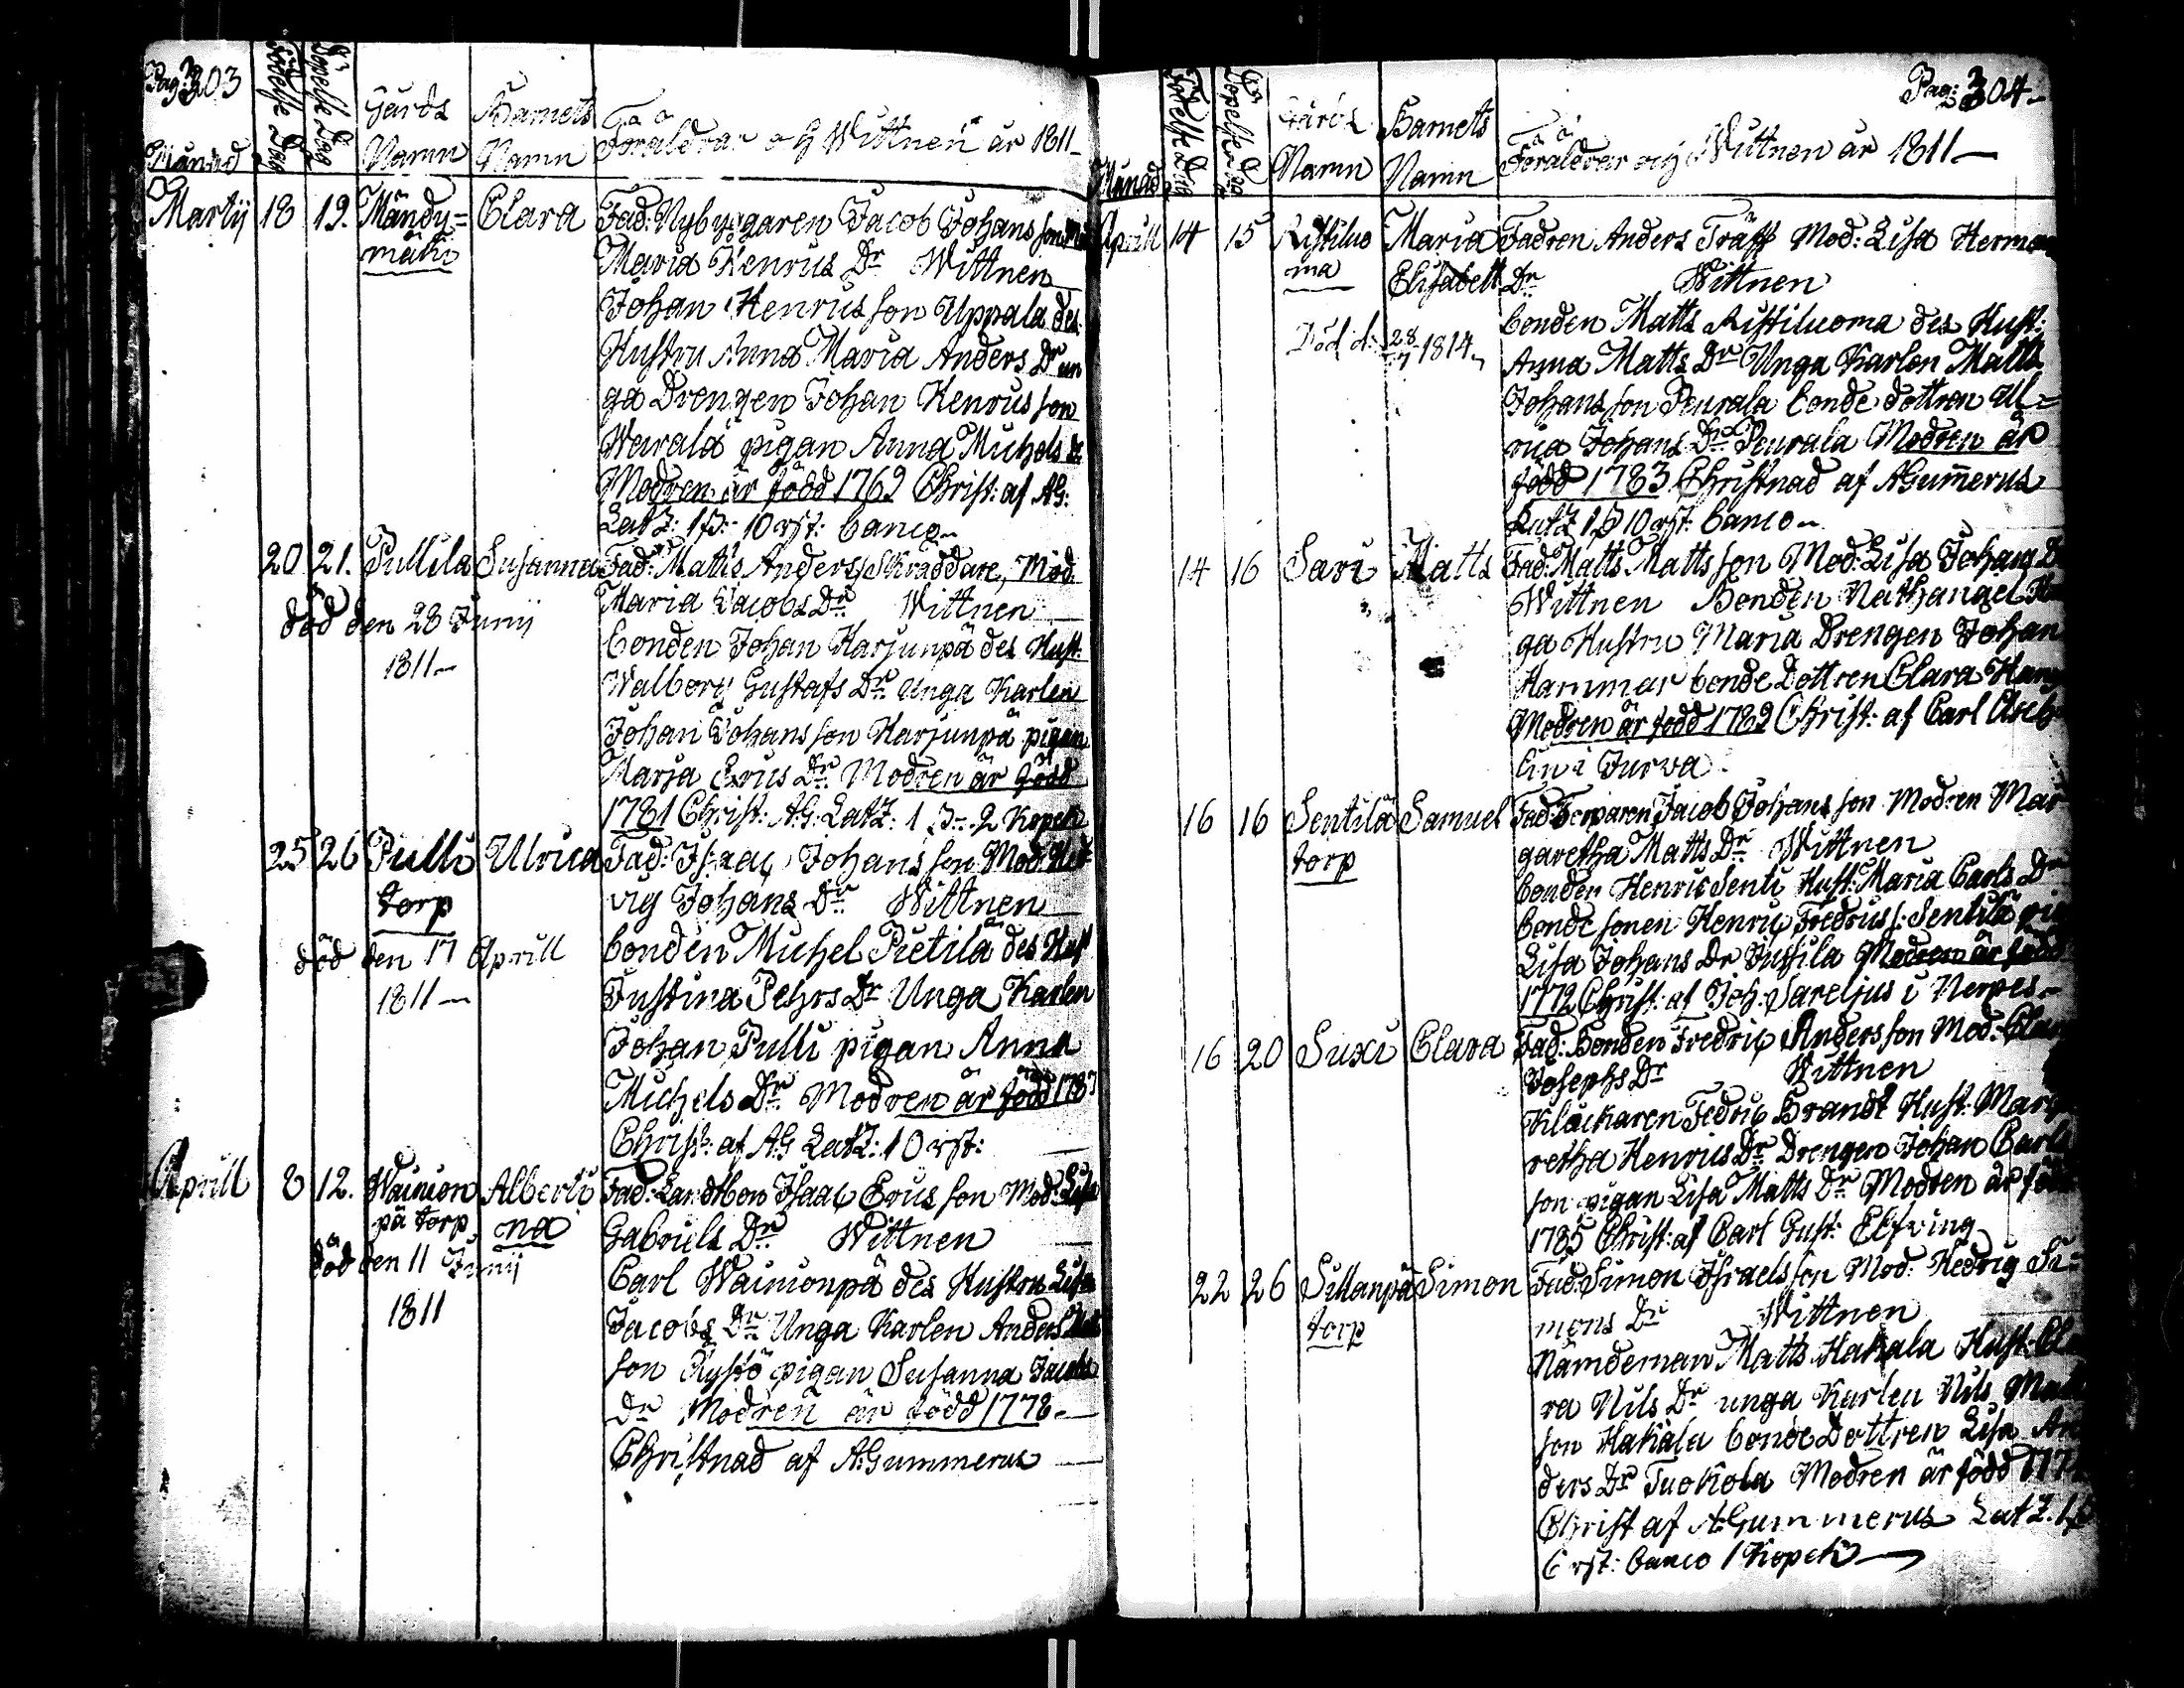 Pag: 303
Månad
Födelse Dag
Döpelse Dag
Gårds Namn
Barnets Namn
Föräldrar och Wittnen år 1811
Martij 18 19. Mändy= Clara Fad: Nybyggaren Jacob Johans son
mäki Maria Henrics Dr Wittnen
Johan Henrics son Uppala des
Hustru Anna Maria Anders Dr un
ga Drengen Johan Henrics son
Wairala pigan Anna Michels Dr
Modren är född 1769 Christ: af AG:
Lat Z: 1 β: 10 rst: banco
20 21. Pullila Susanna Fad: Matts Anders Skräddare, Mod:
död den 28 Junij Maria Jacobs Dr Wittnen
1811 bonden Johan Karjunpä des Hust:
Walborg Gustafs Dr Unga Karlen
Johan Johans son Karjunpä pigan
Marja Erics Dr Modren är född
1781 Christ: AG: Lat Z: 1 β: 2 Kopek
25 26 Pulli Ulrica Fad: Isaac Johans son Mod: Hed
torp vig Johans Dr Wittnen
död den 17 Aprill bonden Michel Pietilä des Hust
1811 Justina Pehrs Dr Unga Karlen
Johan Pulli pigan Anna
Michels Dr Modren är född 1787
Christ: af AG Lat Z: 10 rst:
Aprill 8 12. Wainion Alberti Fad: Landtbon Isaac Erics son Mod: Lisa
pä torp na Gabriels Dr Wittnen
död den 11 Junij Carl Wainionpä des Hustru Lisa
1811 Jacobs Dr Unga Karlen Anders
son Rystö pigan Susanna Jacobs
Dr Modren är född 1778
Christnad af A:Gummerus
Pag: 304
Månad
Födelse Dag
Döpelse Dag
Gårds Namn
Barnets Namn
Föräldrar och Wittnen år 1811
Aprill 14 15 Ristiluo Maria Fadren Anders Träff Mod: Lisa Herman
ma Elisabett Dr Wittnen
Död d: 28/7 1814 bonden Matts Ristiluoma des Hust:
Anna Matts Dr Unga Karlen Matts
Johans son Peurala bonde dottren Ul=
rica Johans Dr Peurala Modren är
född 1783 Christnad af AGummerus
Lat Z 1 β 10 rst: banco
14 16 Sari Matts Fad: Matts Matts son Mod: Lisa Johans D
Wittnen Bonden Nathanael
ga Hustru Maria Drengen Johan
Hammar bonde Dottren Clara Ham
Modren är född 1789 Christ: af Carl Asche
lin i Jurva
16 16 Sentilä Samuel Fad: Torparen Jacob Johans son Modren Mar
torp garetha Matts Dr Wittnen
bonden Henric Senti Hust: Maria Carls Dr
bonde sonen Henric Fredrics s: Sentilä pig
Lisa Johans Dr Jussila Modren är född
1772 Christ: af Joh: Sareljus i Nerpes
16 20 Suxi Clara Fad: Bonden Fredric Anders son Mod: Cla
Josephs Dr Wittnen
Klåckaren Fedric Brandt Hust: Marga
retha Henrics Dr Drengen Johan Carls
son pigan Lisa Matts Dr Modren är född
1785 Christ: af Carl Gust: Elfving
22 26 Sillanpä Simon Fad: Simon Israels son Mod: Hedvig Si=
torp mons Dr Wittnen
Nämdeman Matts Hakala Hust: Cla
ra Nils Dr unga Karlen Nils Matts
son Hakala bonde Dottren Lisa An
ders Dr Tuokola Modren är född 177
Christ af A:Gummerus Lat Z. 1 β
6 rst: banco 1 Kopek